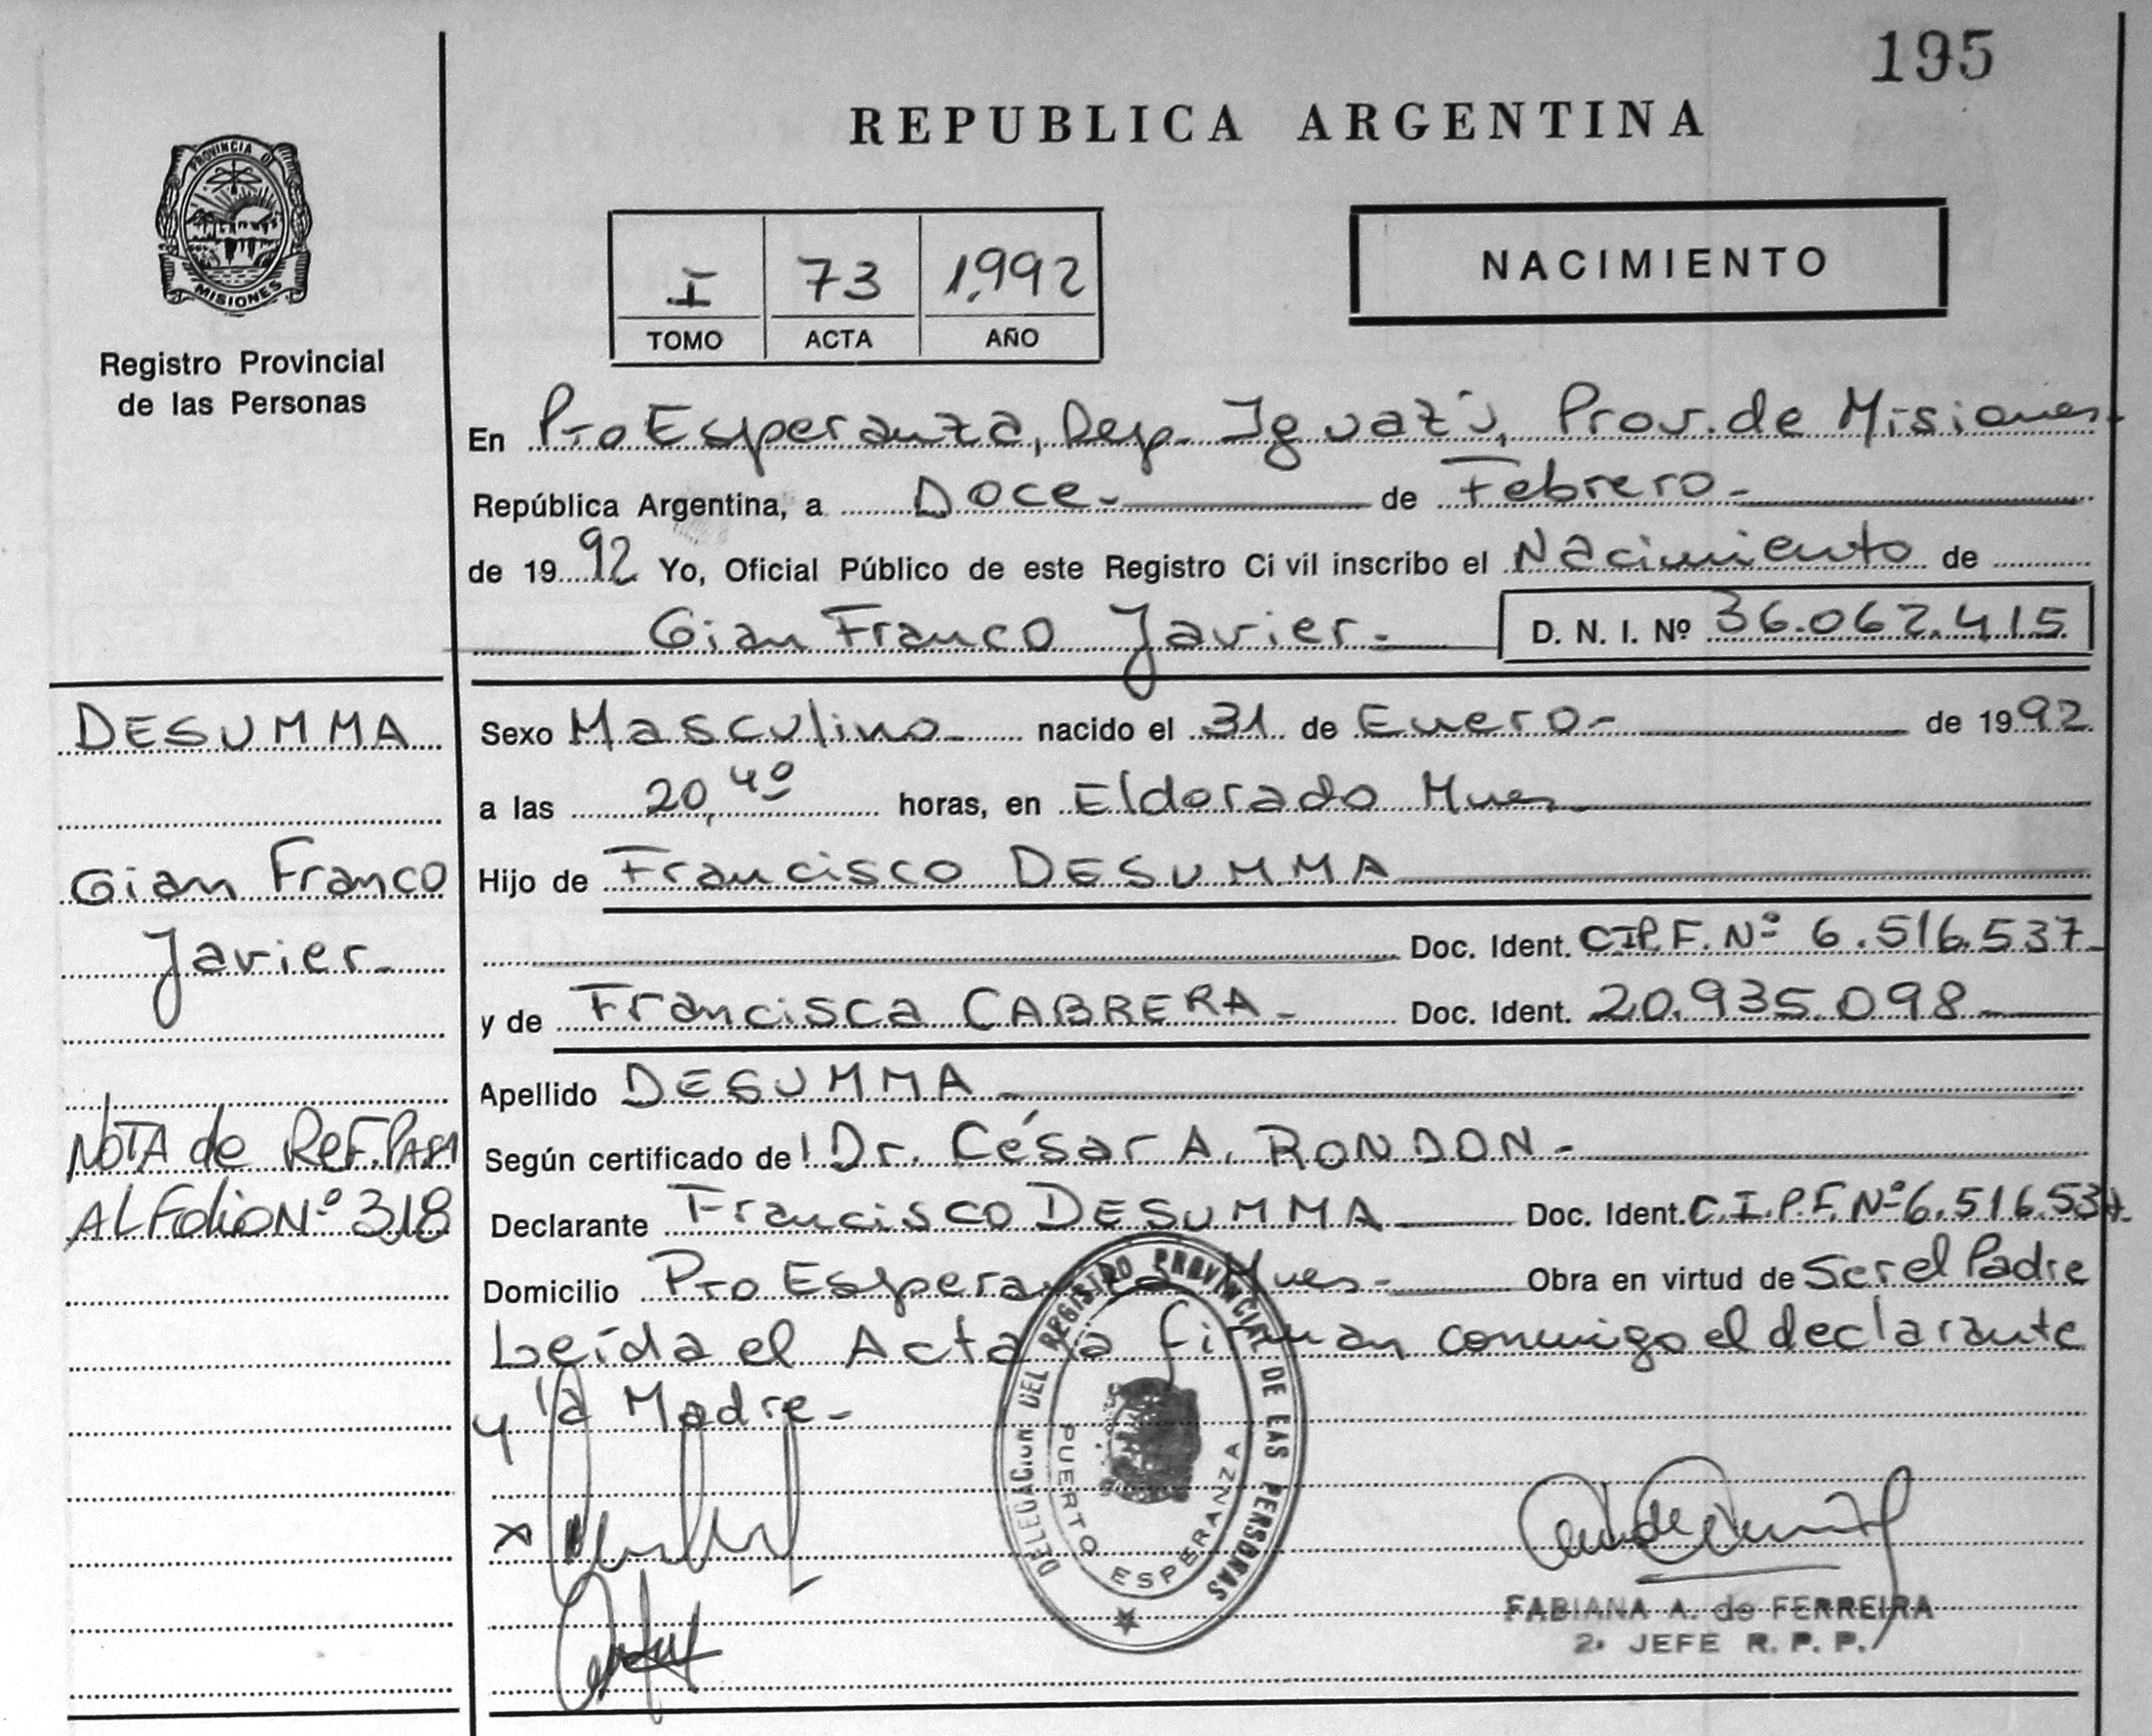 195
REPUBLICA ARGENTINA
PROVINCIA DE
MISIONES
Registro Provincial
de las Personas
I 73 1,992
TOMO ACTA AÑO
NACIMIENTO
En Pto Esperanza, Dep. Iguazú, Prov. de Misiones-
República Argentina, a Doce- de Febrero-
de 1992 Yo, Oficial Público de este Registro Civil inscribo el Nacimiento de
Gian Franco Javier- D. N. I. Nº 36.062.415
DESUMMA
Gian Franco
Javier-
NOTA de REF. PASA
AL Folio Nº 318
Sexo Masculino- nacido el 31 de Enero- de 1992
a las 20,40 horas, en Eldorado Mnes-
Hijo de Francisco DESUMMA
Doc. Ident. C.I.P.F. Nº 6.516.537-
y de Francisca CABRERA- Doc. Ident. 20.935.098-
Apellido DESUMMA-
Según certificado de Dr. César A. RONDON-
Declarante Francisco DESUMMA Doc. Ident. C.I.P.F. Nº 6.516.537-
Domicilio Pto Esperanza Mnes- Obra en virtud de Ser el Padre
Leída el Acta la firman conmigo el declarante
y la Madre-
DELEGACION DEL REGISTRO PROVINCIAL DE LAS PERSONAS
PUERTO ESPERANZA
FABIANA A. de FERREIRA
2º JEFE R. P. P.